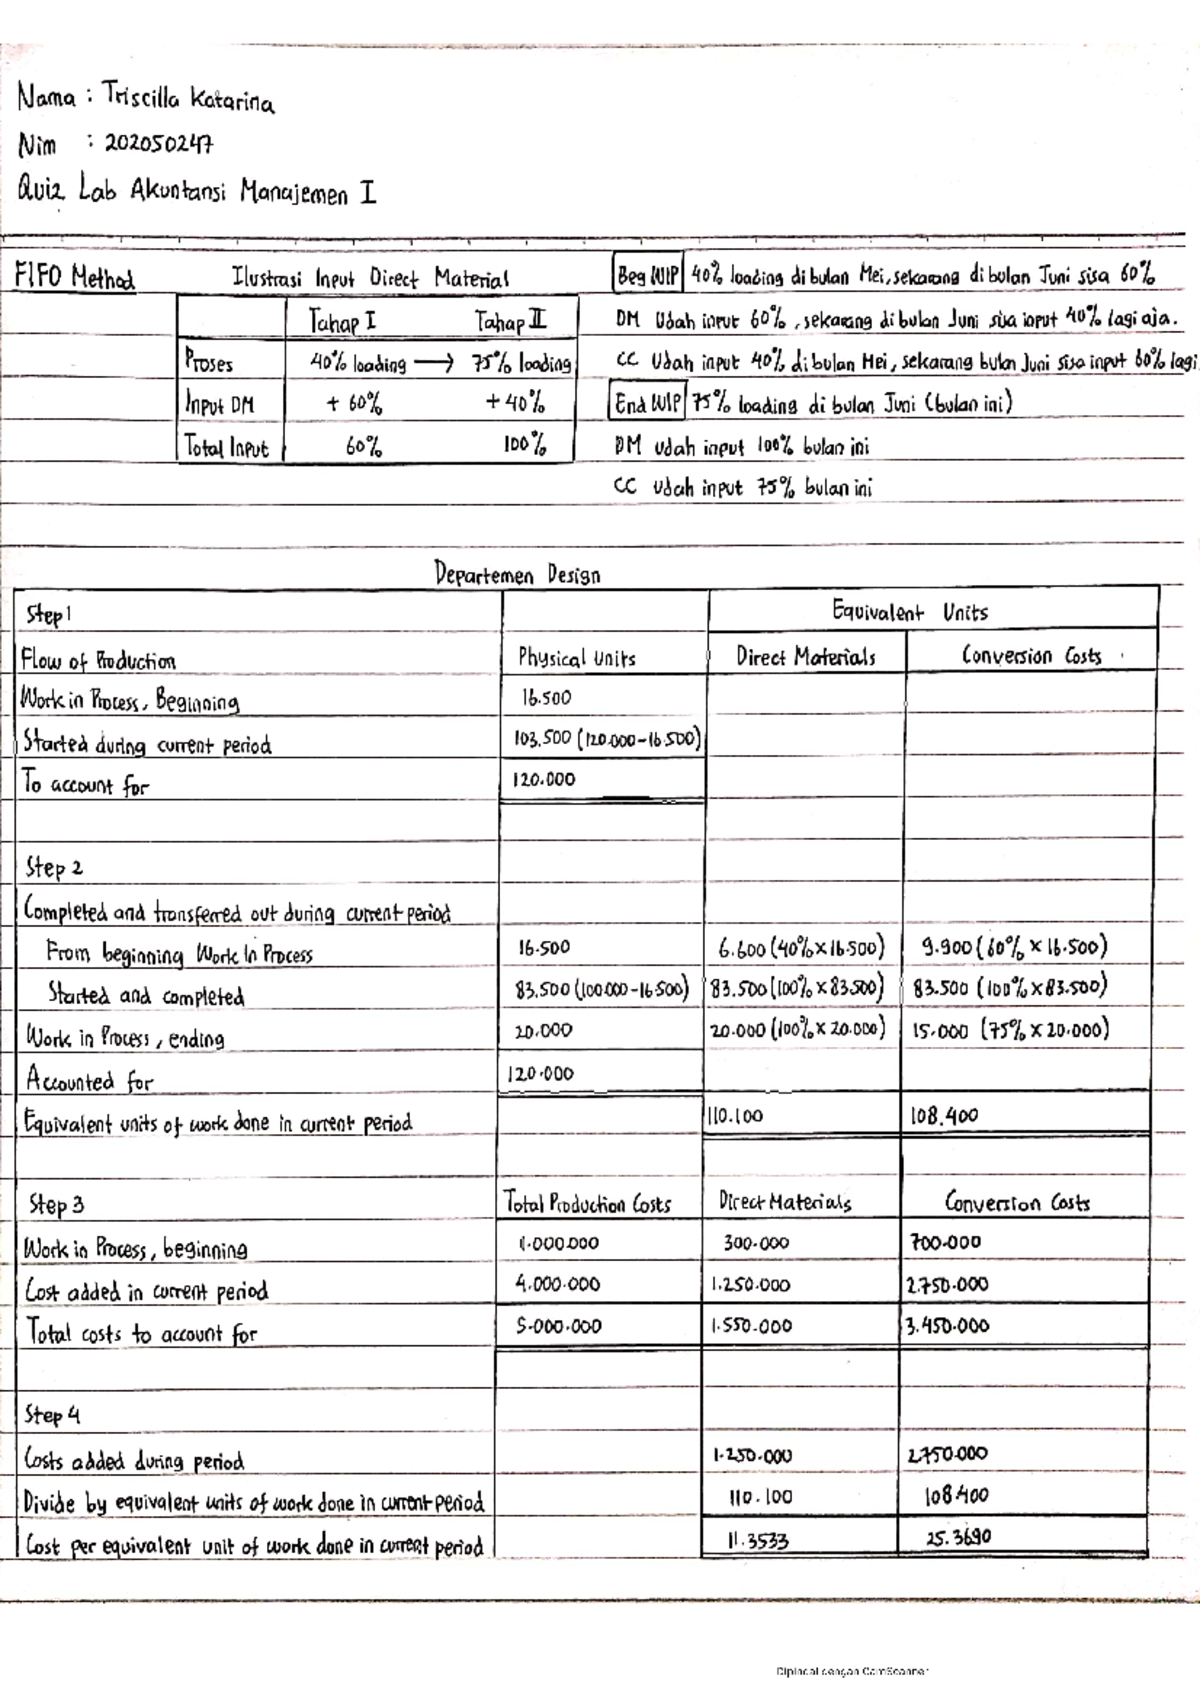 Nama : Triscilla Katarina
Nim : 202050247
Quiz Lab Akuntansi Manajemen I
FIFO Method Ilustrasi Input Direct Material Beg WIP 40% loading di bulan Mei, sekarang di bulan Juni sisa 60%
Tahap I Tahap II DM Udah input 60%, sekarang di bulan Juni sisa input 40% lagi aja.
Proses 40% loading → 75% loading CC Udah input 40% di bulan Mei, sekarang bulan Juni sisa input 60% lagi
Input DM + 60% + 40% End WIP 75% loading di bulan Juni (bulan ini)
Total Input 60% 100% DM udah input 100% bulan ini
CC Udah input 75% bulan ini
Departemen Design
Step 1 Equivalent Units
Flow of Production Physical Units Direct Materials Conversion Costs
Work in Process, Beginning 16.500
Started during current period 103.500 (120.000-16.500)
To account for 120.000
Step 2
Completed and transferred out during current period
From beginning Work In Process 16.500 6.600 (40% x 16.500) 9.900 (60% x 16.500)
Started and completed 83.500 (100.000-16.500) 83.500 (100% x 83.500) 83.500 (100% x 83.500)
Work in Process, ending 20.000 20.000 (100% x 20.000) 15.000 (75% x 20.000)
Accounted for 120.000
Equivalent units of work done in current period 110.100 108.400
Step 3 Total Production Costs Direct Materials Conversion Costs
Work in Process, beginning 1.000.000 300.000 700.000
Cost added in current period 4.000.000 1.250.000 2.750.000
Total costs to account for 5.000.000 1.550.000 3.450.000
Step 4
Costs added during period 1.250.000 2.750.000
Divide by equivalent units of work done in current period 110.100 108.400
Cost per equivalent unit of work done in current period 11.3533 25.3690
Dipindai dengan CamScanner